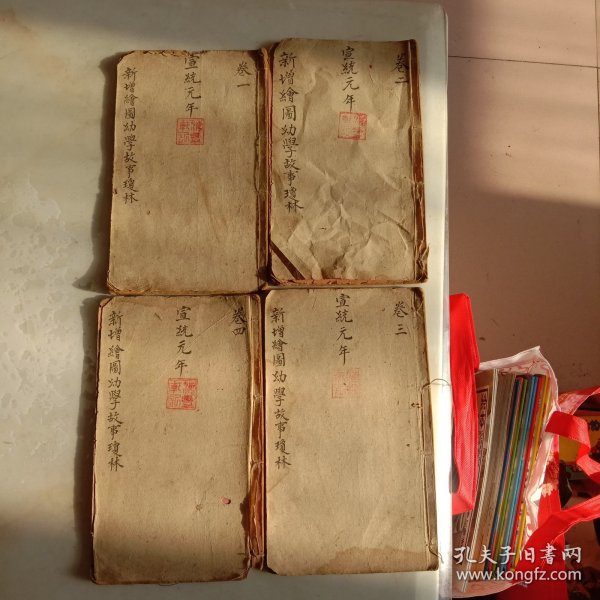 卷一
宣統元年
新增繪圖幼學故事瓊林
卷二
宣統元年
新增繪圖幼學故事瓊林
卷三
宣統元年
新增繪圖幼學故事瓊林
卷四
宣統元年
新增繪圖幼學故事瓊林
孔夫子旧書网
www.kongfz.com